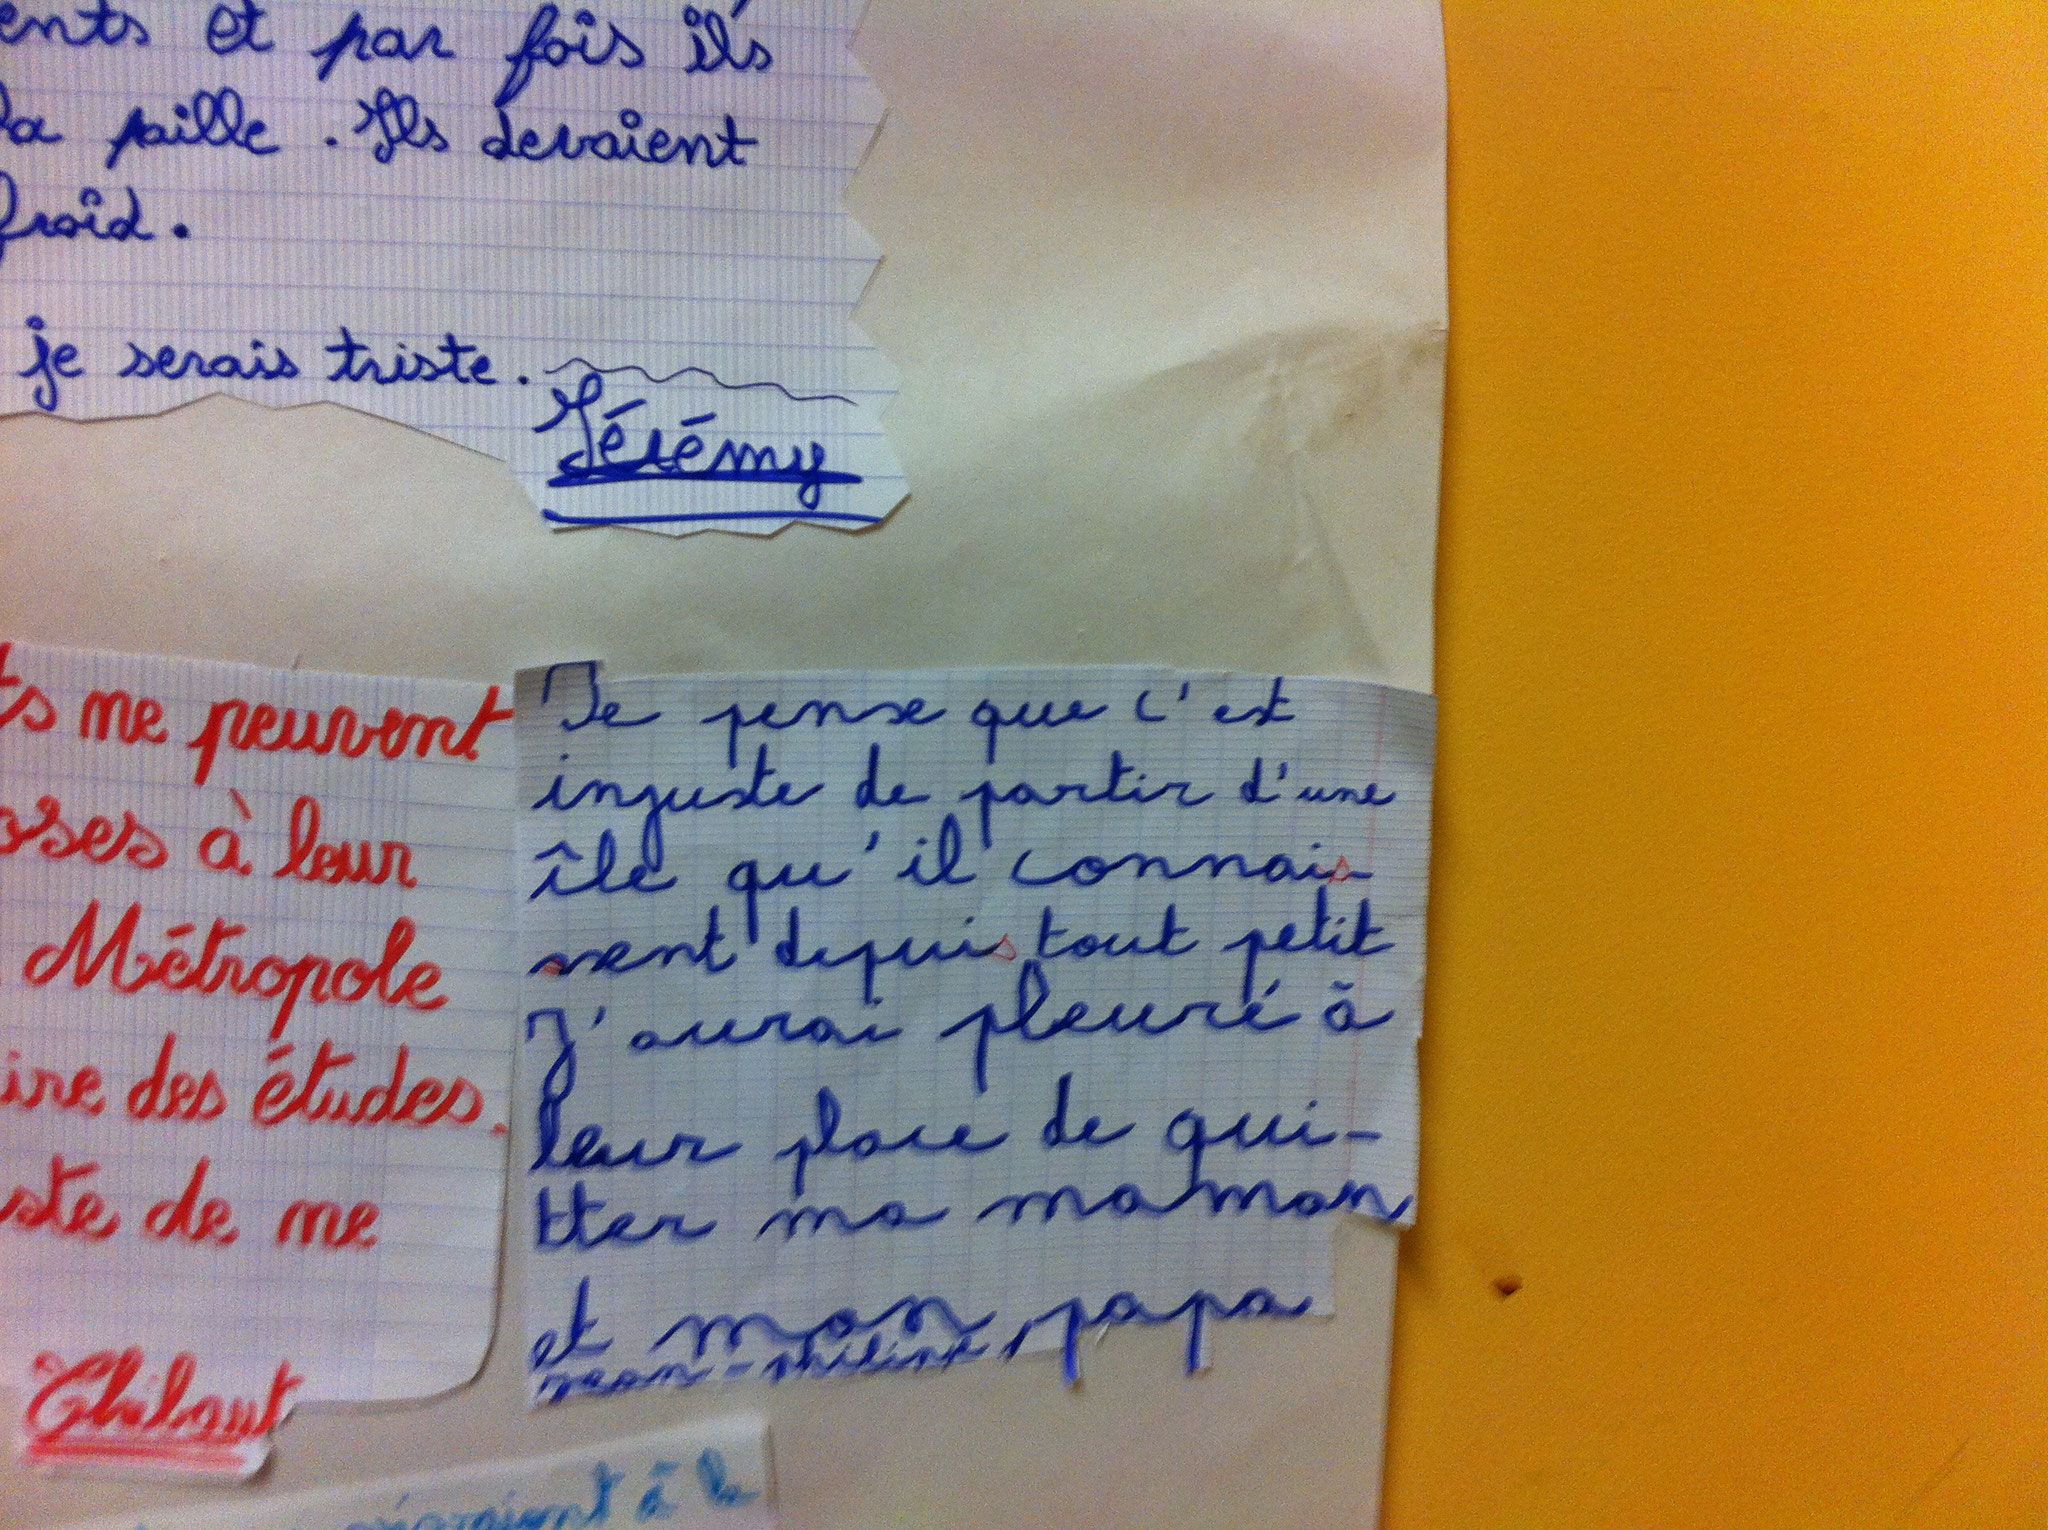 ents et par fois ils
la paille. Ils devaient
froîd.
je serais triste.
Jérémy
ts ne peuvent
oses à leur
Métropole
ire des études.
ste de me
Thibaut
Je pense que c'est
injuste de partir d'une
île qu'il connais
sent depuis tout petit
J'aurai pleuré à
leur place de qui-
tter ma maman
et mon papa
Jean-Philippe
à la